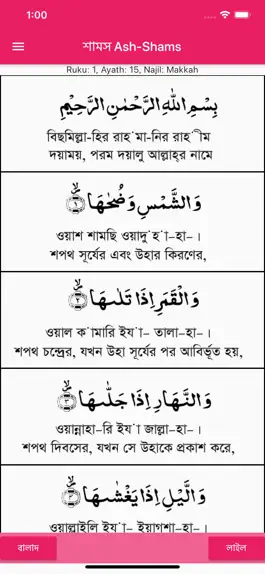 1:00
শামস Ash-Shams
Ruku: 1, Ayath: 15, Najil: Makkah
بِسْمِ اللهِ الرَّحْمٰنِ الرَّحِيْمِ
বিছমিল্লা-হির রাহ´মা-নির রাহ´ীম
দয়াময়, পরম দয়ালু আল্লাহ্‌র নামে
وَالشَّمْسِ وَضُحٰىهَا ۙ﴿١﴾
ওয়াশ শামছি ওয়াদু´হ´া-হা-।
শপথ সূর্যের এবং উহার কিরণের,
وَالْقَمَرِ اِذَا تَلٰىهَا ۙ﴿٢﴾
ওয়াল ক´ামারি ইয´া- তালা-হা-।
শপথ চন্দ্রের, যখন উহা সূর্যের পর আবির্ভূত হয়,
وَالنَّهَارِ اِذَا جَلّٰىهَا ۙ﴿٣﴾
ওয়ান্নাহা-রি ইয´া জাল্লা-হা-।
শপথ দিবসের, যখন সে উহাকে প্রকাশ করে,
وَالَّيْلِ اِذَا يَغْشٰىهَا ۙ﴿٤﴾
ওয়াল্লাইলি ইয´া- ইয়াগশা-হা-।
বালাদ
লাইল